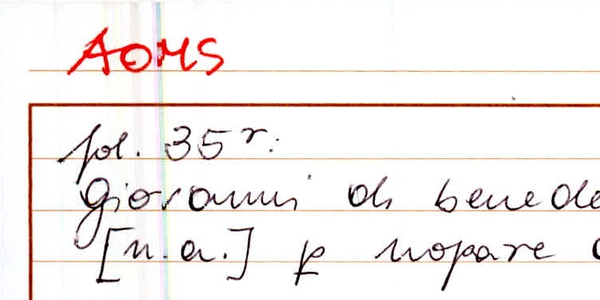 AOMS
fol. 35r:
Giovanni di benede
[n.a.] p nopare